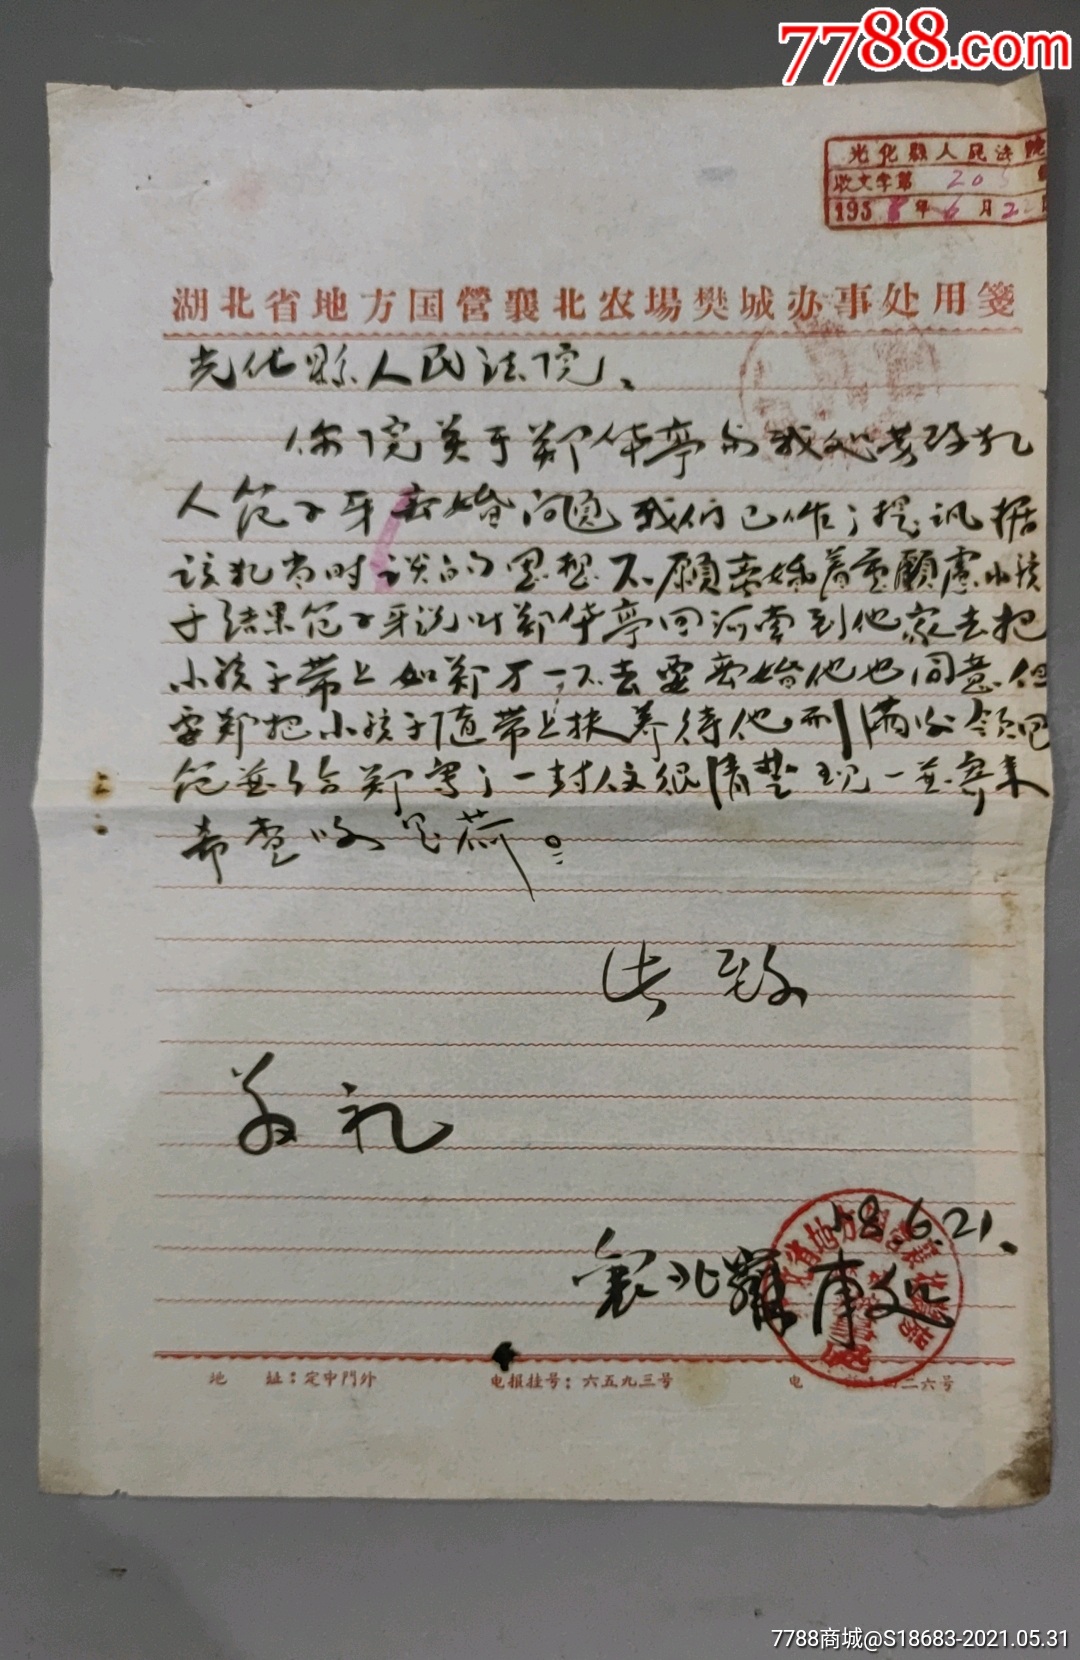 7788.com
光化縣人民法院
收文字第 205 號
1958年6月22日
湖北省地方国营襄北农場樊城办事处用箋
光化縣人民法院、
你院关于郑华亭与我处劳改犯
人范子牙离婚问题我们已作了提讯据
该犯当时谈的思想不願离婚着重顧慮小孩
子结果范子牙说叫郑华亭回河南到他家去把
小孩子带上如郑万一不去要离婚他也同意但
要郑把小孩子随带上扶养待他刑满后领回
范並给郑写了一封信很清楚现一並寄来
希查收是荷。
此致
敬礼
58.6.21.
襄北
地 址：定中門外 电报挂号：六五九三号 电 二六号
7788商城@S18683-2021.05.31